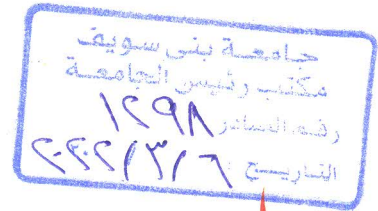 جامعة بنى سويف
مكتب رئيس الجامعة
رقم الصادر ١٢٩٨
التاريخ : ٢٠٢٢/٣/٦